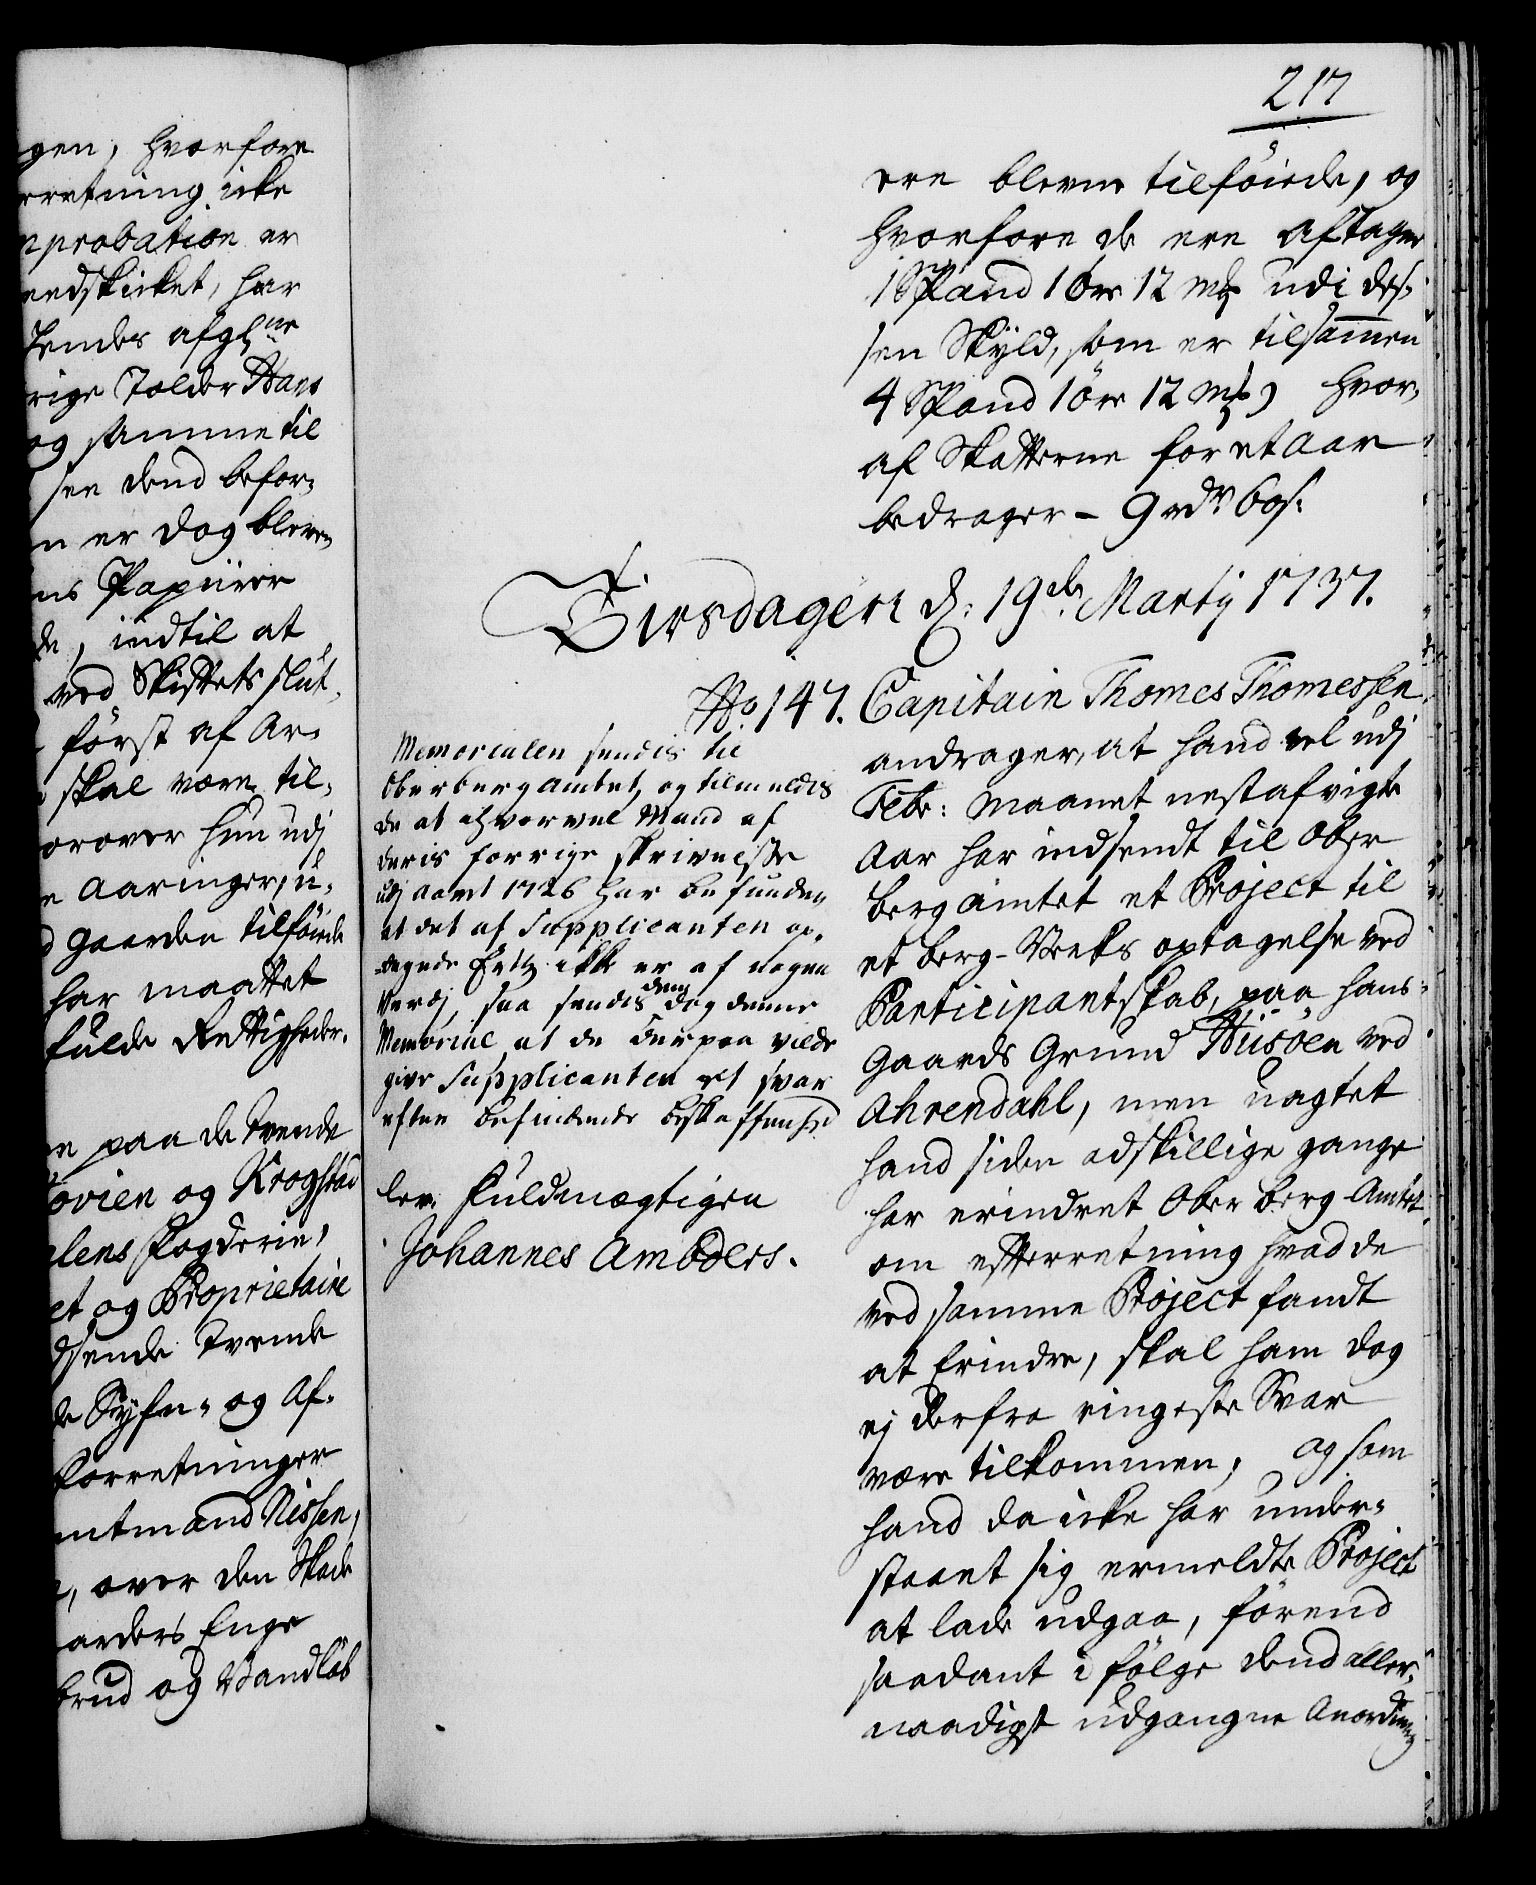 gen, hvorfore
rretning icke
probation er
nedskicket, har
Hendes afghne
rige Tolder Hans
og samme til
sen dend befor-
n er dog bleven
ns Papiirer
de, indtil at
ved Skiftets slut-
først af Ar-
skal være til-
orover hun udj
e Aaringer, u-
d gaarden tilføiede
har maattet
fulde Rettigheder.
paa de tvende
ovien og Krogstad
lens fogderie,
et og Proprietaire
dsende tvende
de Syfn- og Af-
forretninger
mtmand Nissen,
, over den Skade
aarders Enge
brud og Vandløb
217
ere blevne tilføiede, og
hvorfore de ere aftagen
1 Spand 1 øre 12 mk udi des-
sen Skyld, som er tilsammen
4 Spand 1 øre 12 mk) hvor-
af Skatterne for et Aar
bedrager - 9 rdr 6 os:
Tirsdagen d: 19de Martij 1737.
No 147. Capitain Thomes Thomessen
andrager, at hand vel udj
Febr: Maanet nestafvigte
Aar har indsendt til Ober
berg amtet et Project til
et berg-Verks optagelse ved
Participantskab, paa hans
Gaards Grund Huisøen ved
Ahrendahl, men uagtet
hand siden adskillige gange
har erindret Ober berg Amtet
om efterretning hvad de
ved samme Project fandt
at Erindre, skal ham dog
ej derfra ringeste Svar
være tilkommen, og som
hand da icke har under-
staaet sig ermeldte Project
at lade udgaa, førend
saadant i følge dend aller-
naadigst udgangne Anordning
Memorialen sendis til
Oberbergamtet, og tilmeldis
de at ihvorvel Mand af
deris forrige skrivelse
udj aaret 1726 har befunden
at det af Supplicanten op-
dagede Ertz ikke er af nogen
Verdj, saa sendis dem dog denne
Memorial at de derpaa vilde
give Supplicanten et svar
efter befindende beskaffenhed
lev. Fuldmægtigen
Johannes Amders.